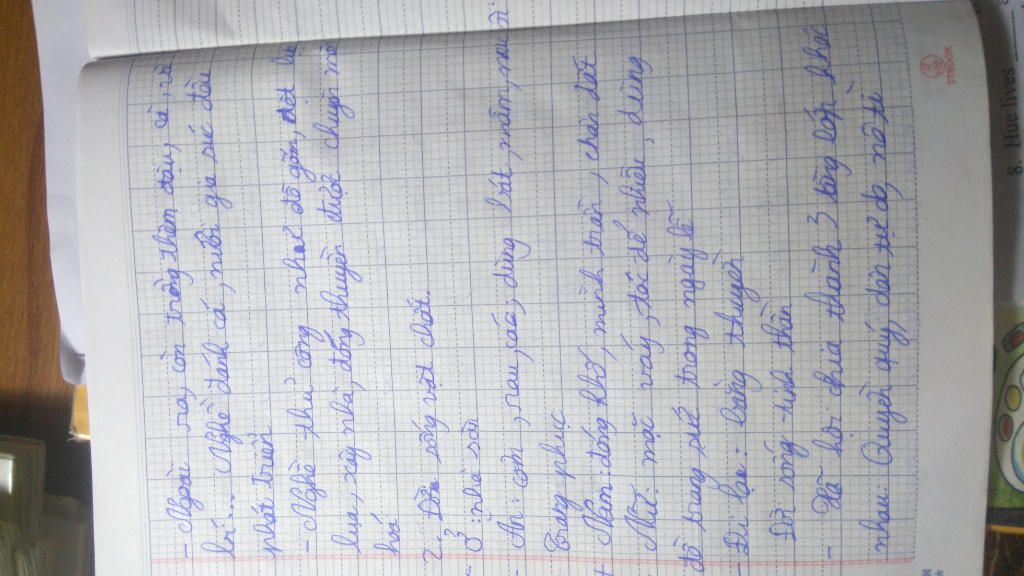 - Ngoài ra, còn trồng thêm đậu, cà, bầu
bí.... Nghề đánh cá, nuôi gia súc đều
phát triển
- Nghề thủ công như đồ gốm, dệt lụa
lụa, xây nhà, đóng thuyền được chuyên môn
hoá
2. Đời sống vật chất.
- Ở: nhà sàn
- Ăn: cơm, rau, cá; dùng bát, mâm, muôi
Trang phục
+ Nam: đóng khố, mình trần, chân đất
Nữ: mặc váy, tóc để nhiều, dùng
đồ trang sức trong ngày lễ
- Đi lại: bằng thuyền
Đời sống tinh thần
- Xã hội chia thành 3 tầng lớp khác
nhau: Quyền quý, dân tự do, nô tì
TTBOOK
8. Hue lives